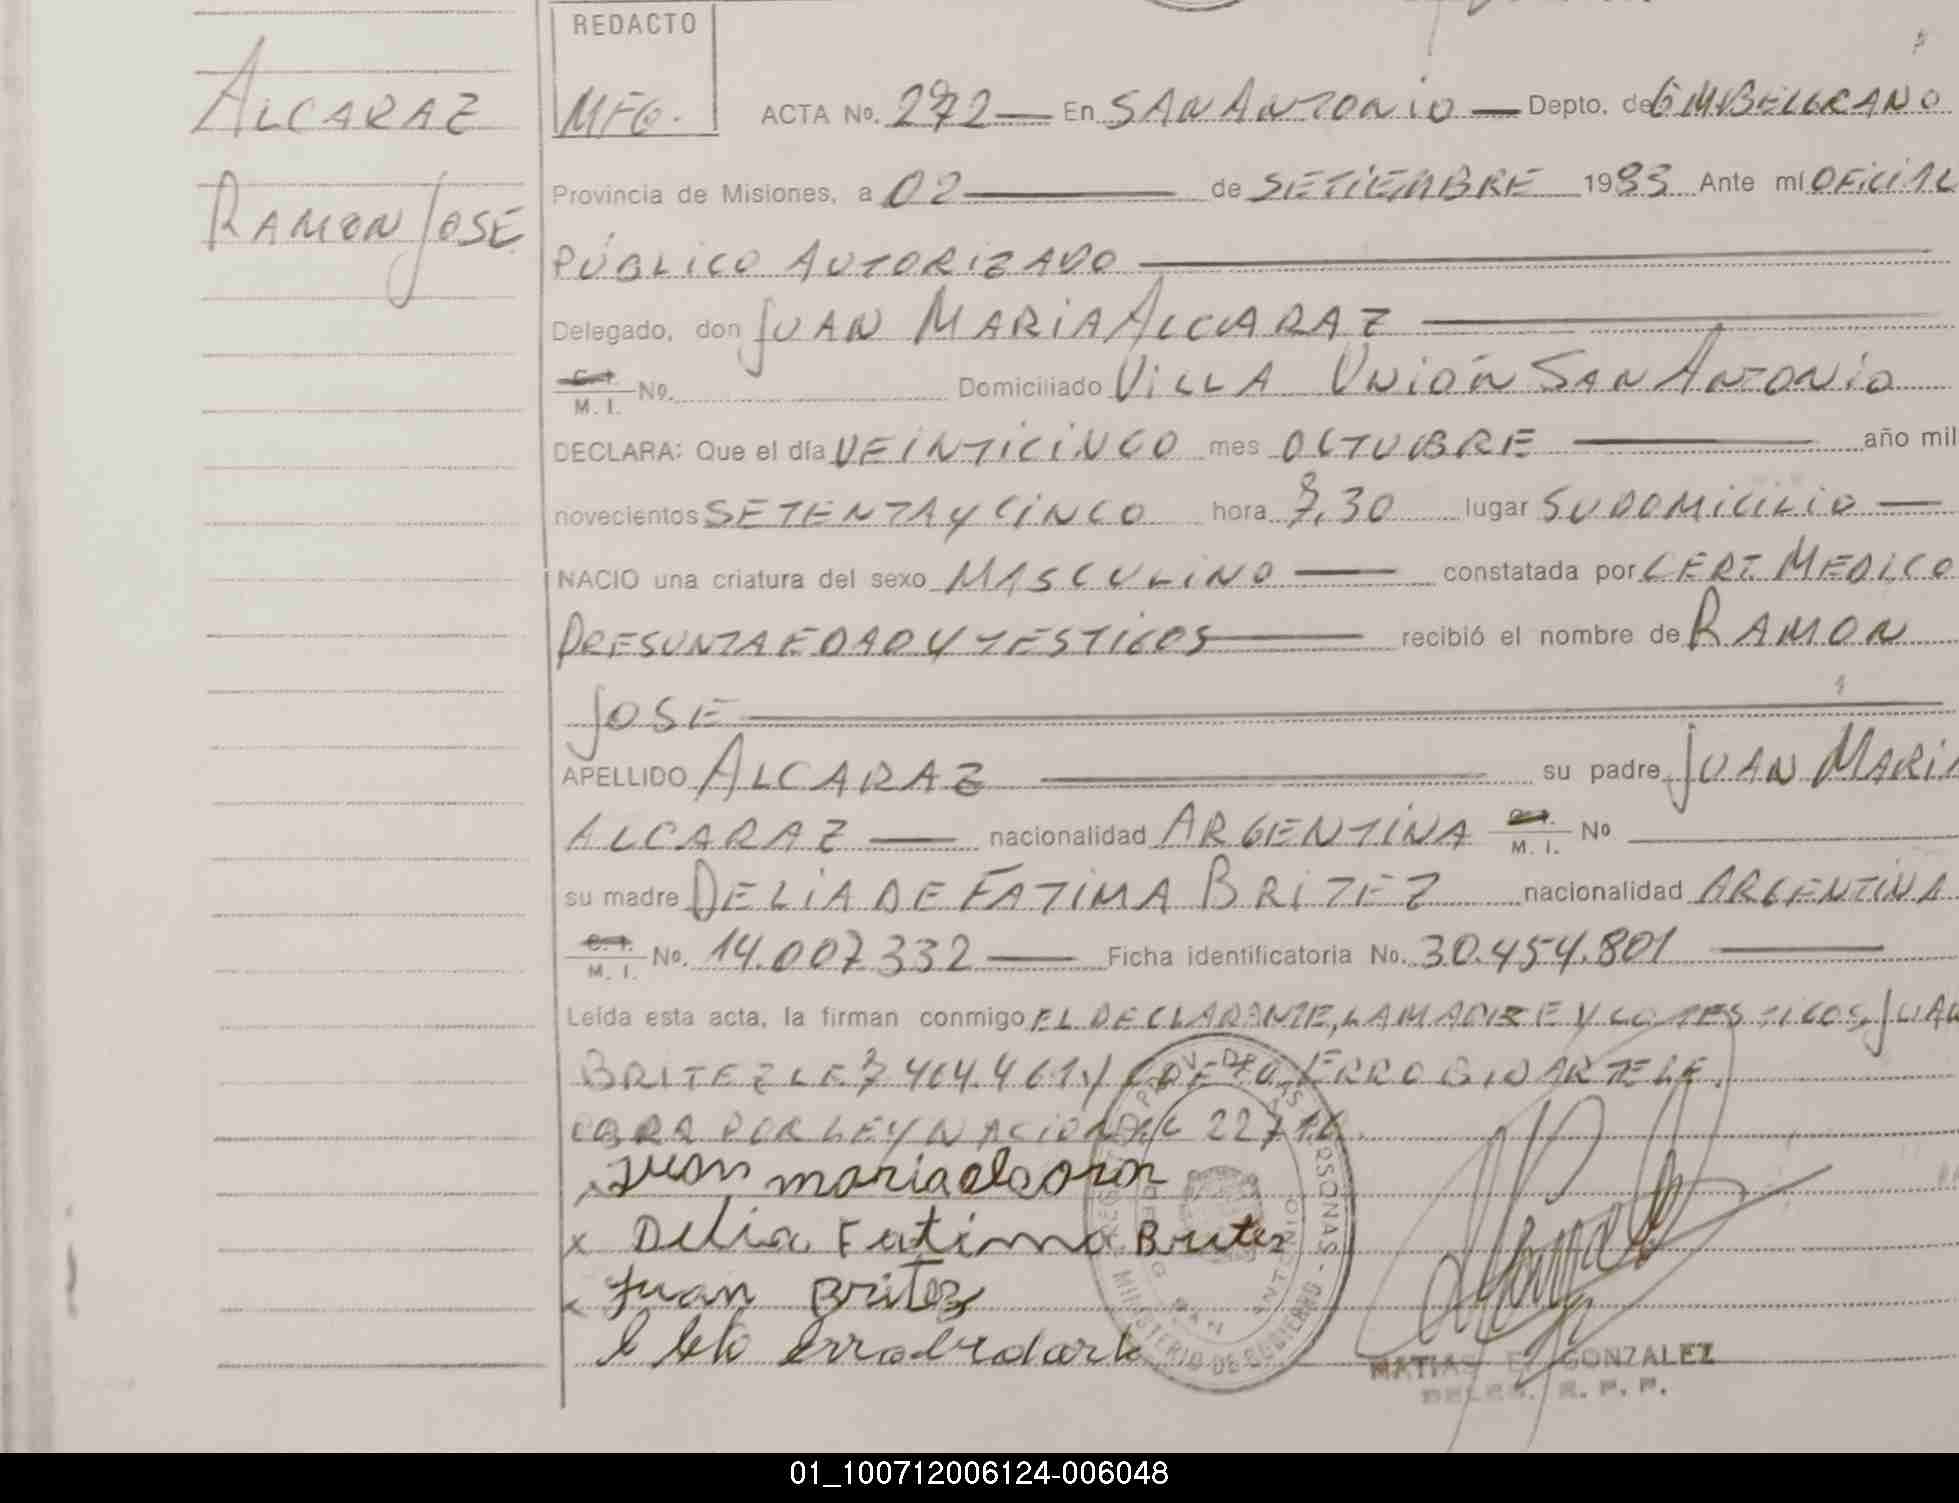 REDACTO
MFG.
ALCARAZ
RAMON JOSE
ACTA No. 272 — En SAN ANTONIO — Depto. de G M BELGRANO
Provincia de Misiones, a 02 — de SETIEMBRE 1983 Ante mí OFICIAL
PÚBLICO AUTORIZADO —
Delegado, don JUAN MARIA ALCARAZ —
C. I. / M. I. No. Domiciliado VILLA UNIÓN SAN ANTONIO
DECLARA: Que el día VEINTICINCO mes OCTUBRE — año mil
novecientos SETENTA Y CINCO hora 7,30 lugar SU DOMICILIO —
NACIO una criatura del sexo MASCULINO — constatada por CERT MEDICO
PRESUNTA EDAD Y TESTIGOS — recibió el nombre de RAMON
JOSE —
APELLIDO ALCARAZ — su padre JUAN MARIA
ALCARAZ — nacionalidad ARGENTINA C. I. / M. I. No —
su madre DELIA DE FATIMA BRITEZ nacionalidad ARGENTINA
C. I. / M. I. No. 14.007.332 — Ficha identificatoria No. 30.454.801 —
Leída esta acta, la firman conmigo EL DECLARANTE, LA MADRE Y LO TESTIGOS, JUAN
BRITEZ LE 7.464.461 Y ERROBIDARTE LE
OBRA POR LEY NACIONAL 22
Juan maria alcaraz
x Delia Fatima Britez
x Juan Britez
Cleto Errobidarte
PROV. DE LAS PERSONAS - MINISTERIO DE GOBIERNO
SAN ANTONIO
MATIAS E. GONZALEZ
DELEG. R. P. P.
01_100712006124-006048